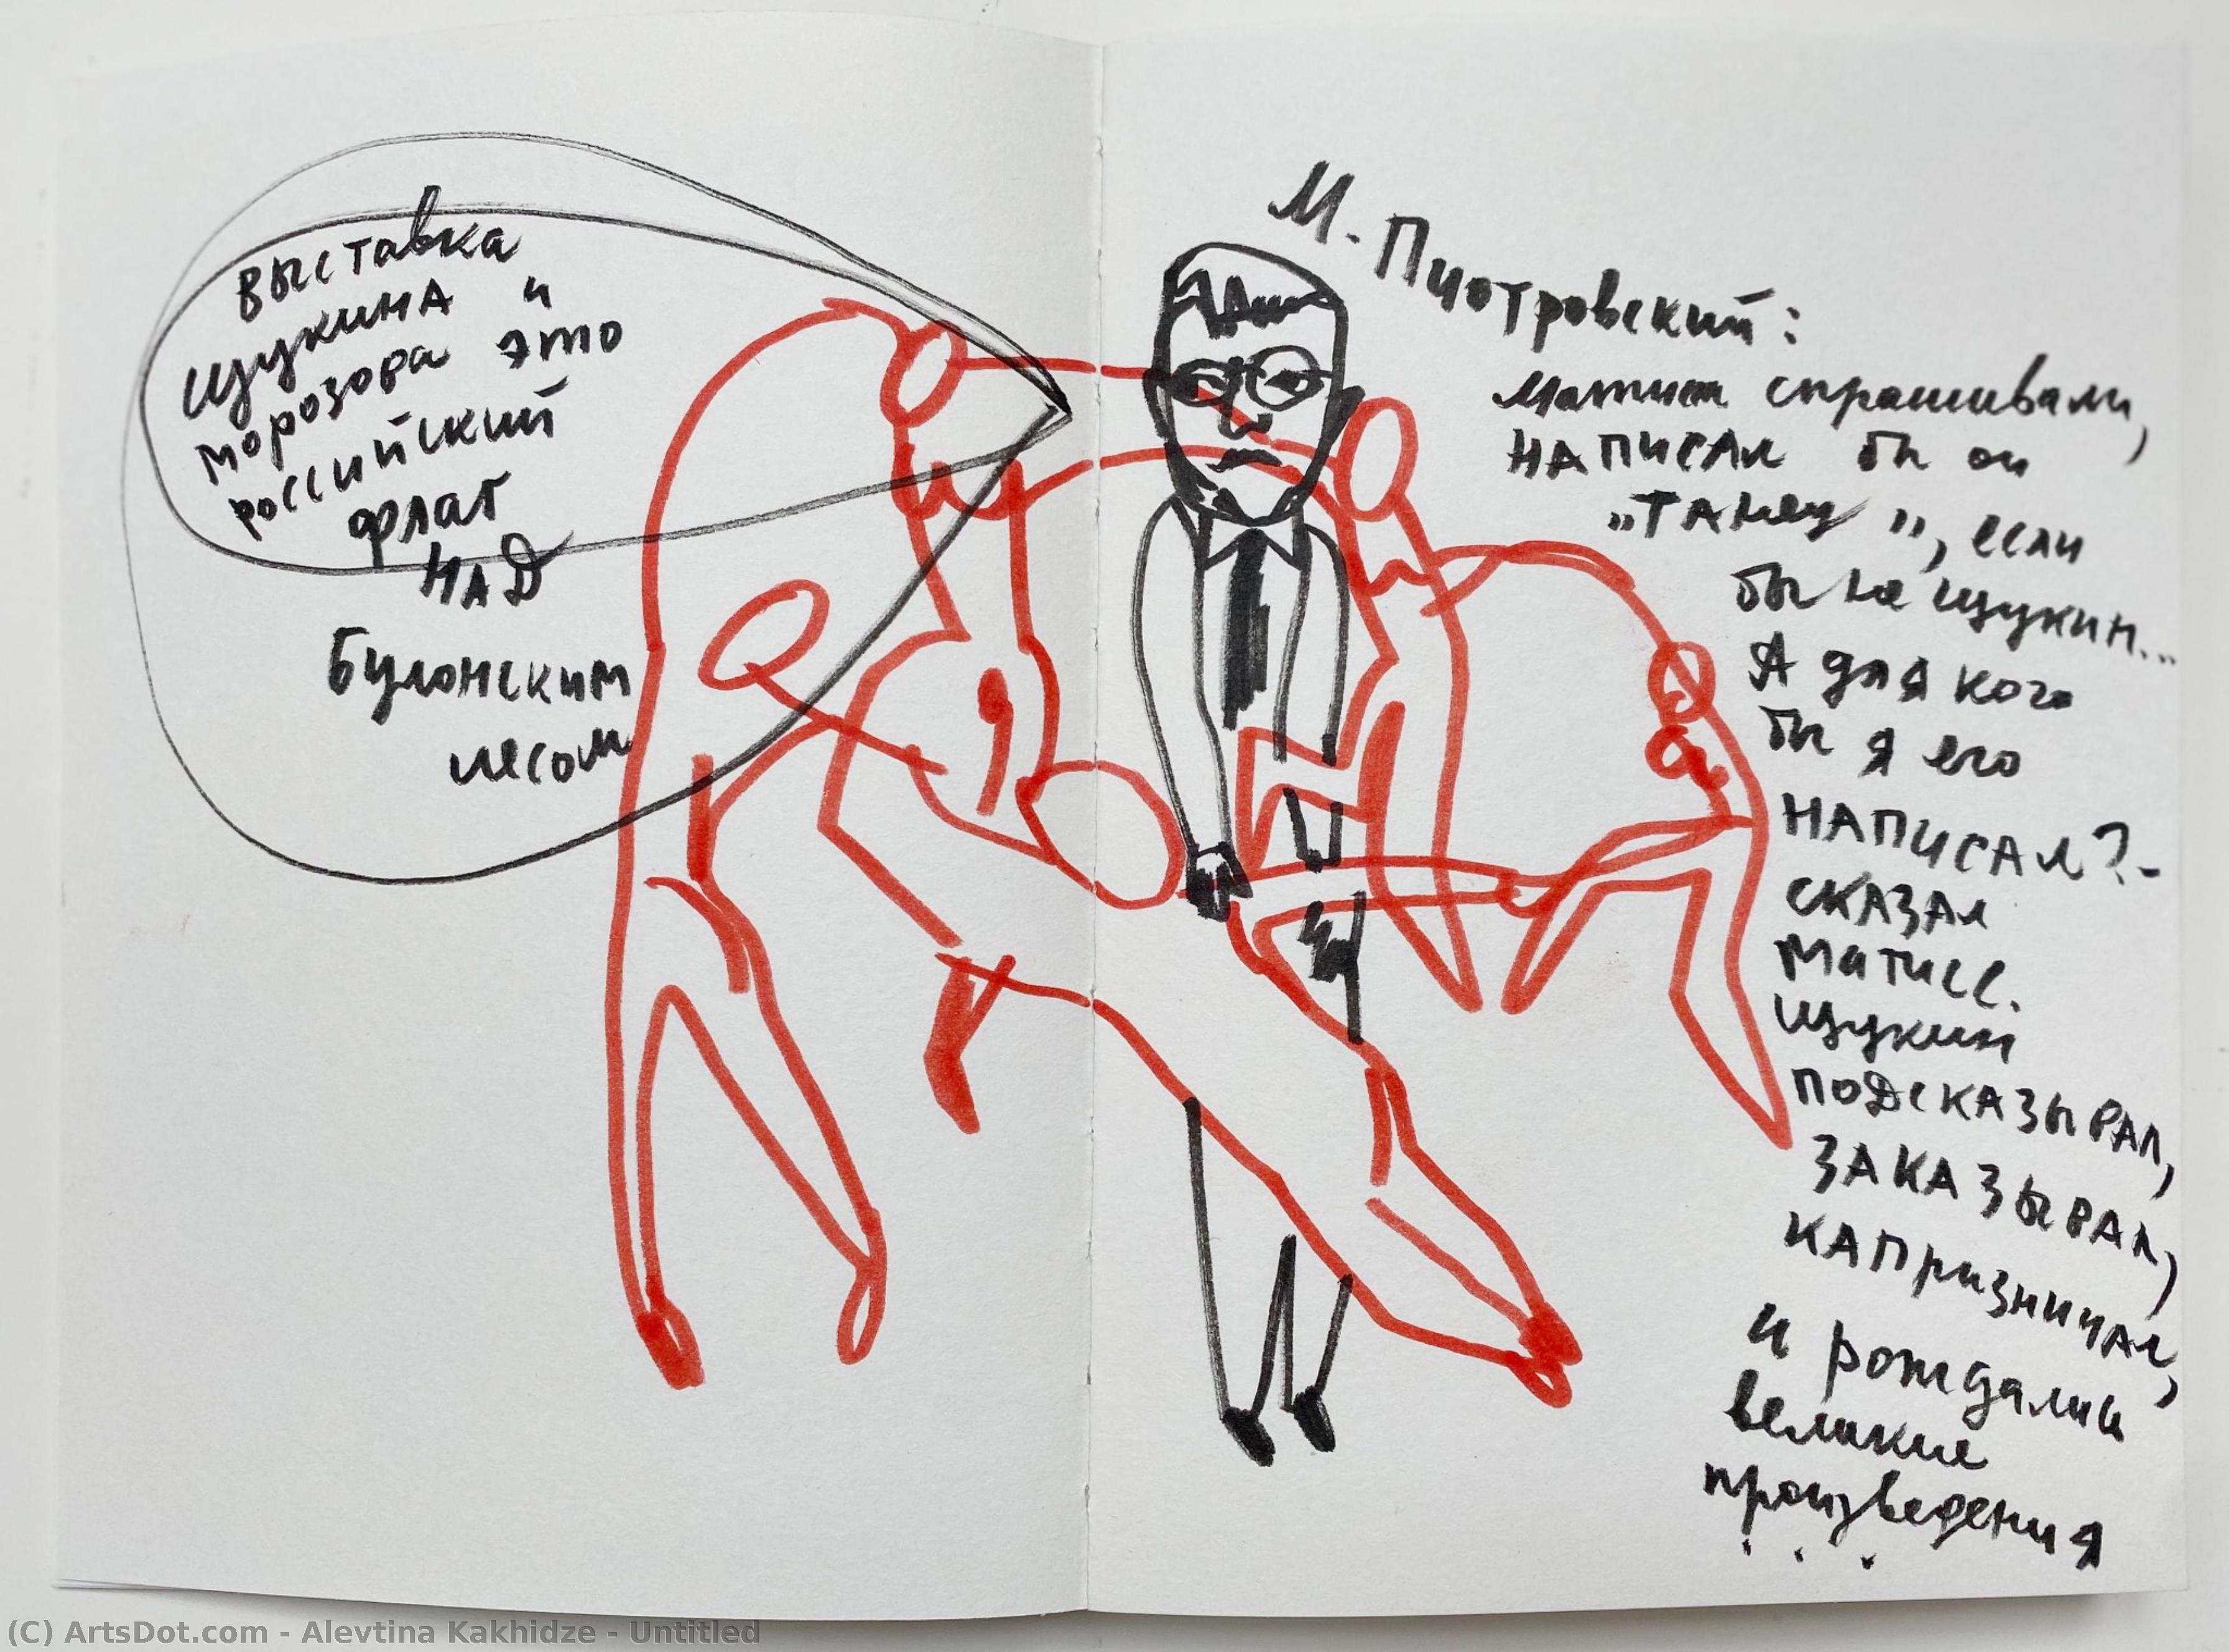 выставка
щукина и
морозова это
российский
флаг
над
Булонским
лесом
М. Пиотровский:
Матисса спрашивали,
написал бы он
„Танец”, если
бы не щукин...
А для кого
бы я его
написал?-
сказал
Матисс.
щукин
подсказывал,
заказывал,
капризничал,
и рождались
великие
произведения
...
(C) ArtsDot.com - Alevtina Kakhidze - Untitled